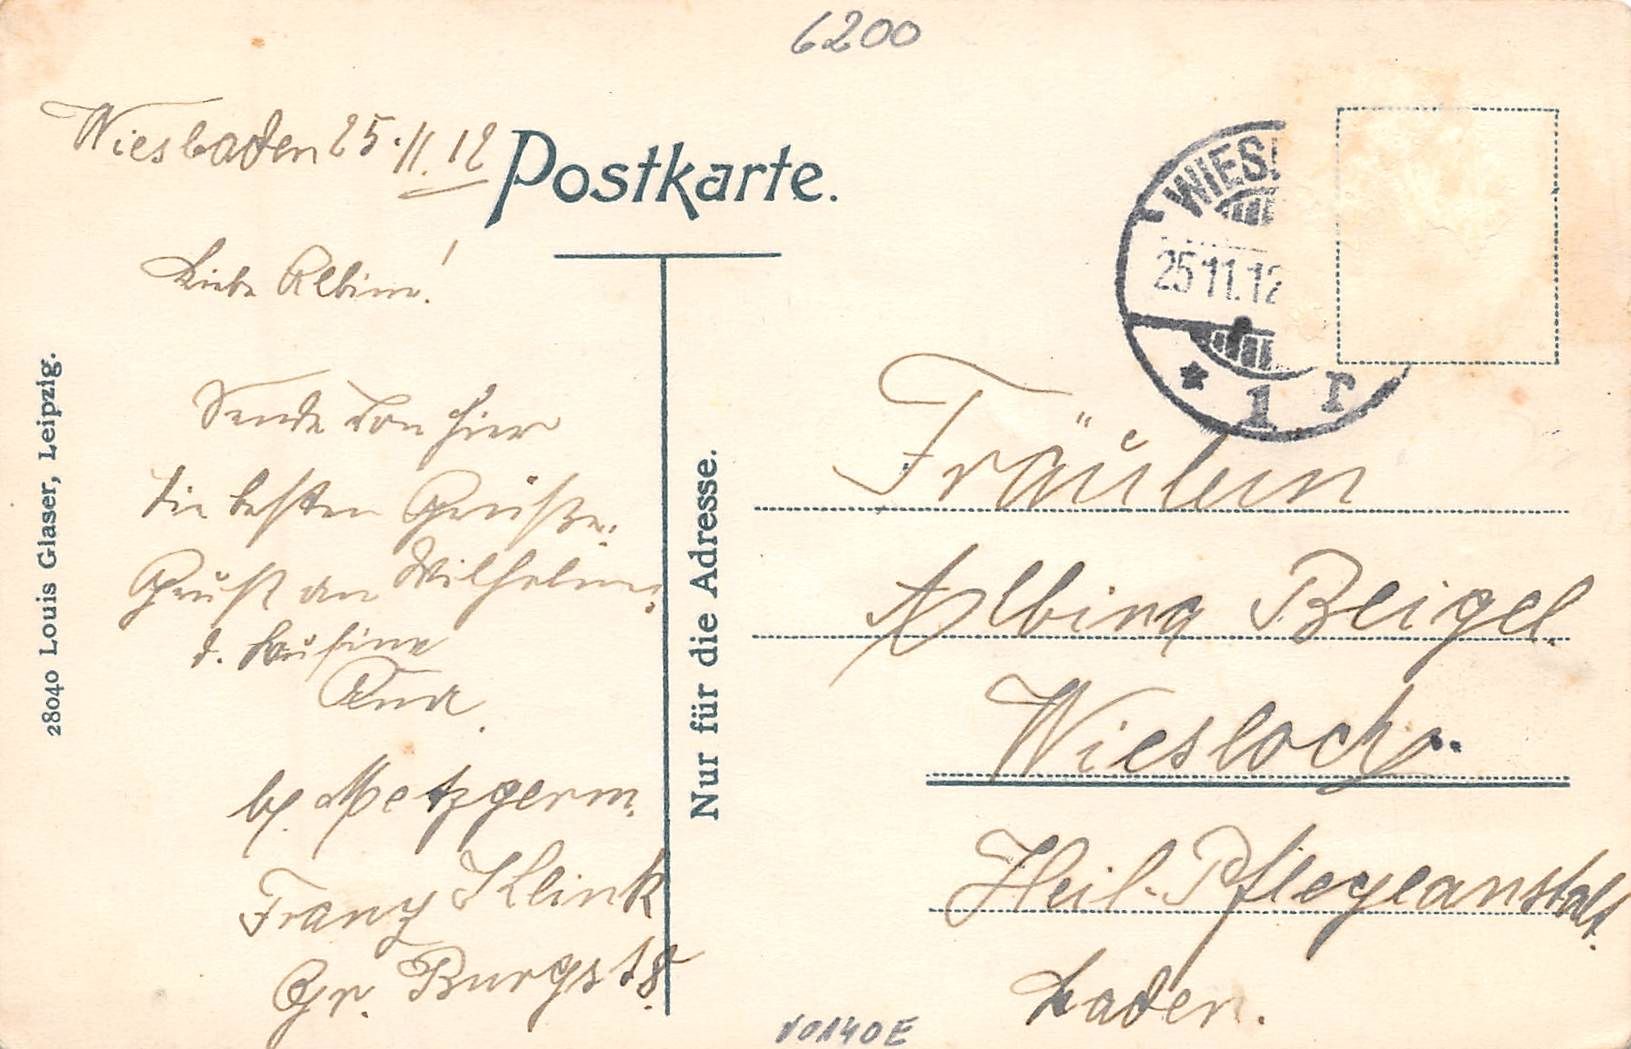 6200
Wiesbaden 25.11.12
Postkarte.
WIES
25.11.12
* 1 r
Liebe Albine!
Sende von hier
die besten Grüße.
Gruß an Wilhelm.
d.
bh. Metzgerm.
Franz Klink
Gr. Burgst 8.
28040 Louis Glaser, Leipzig.
Nur für die Adresse.
Fräulein
Albina Beigel.
Wiesloch.
Heil-Pflegeanstalt.
Baden.
10140E